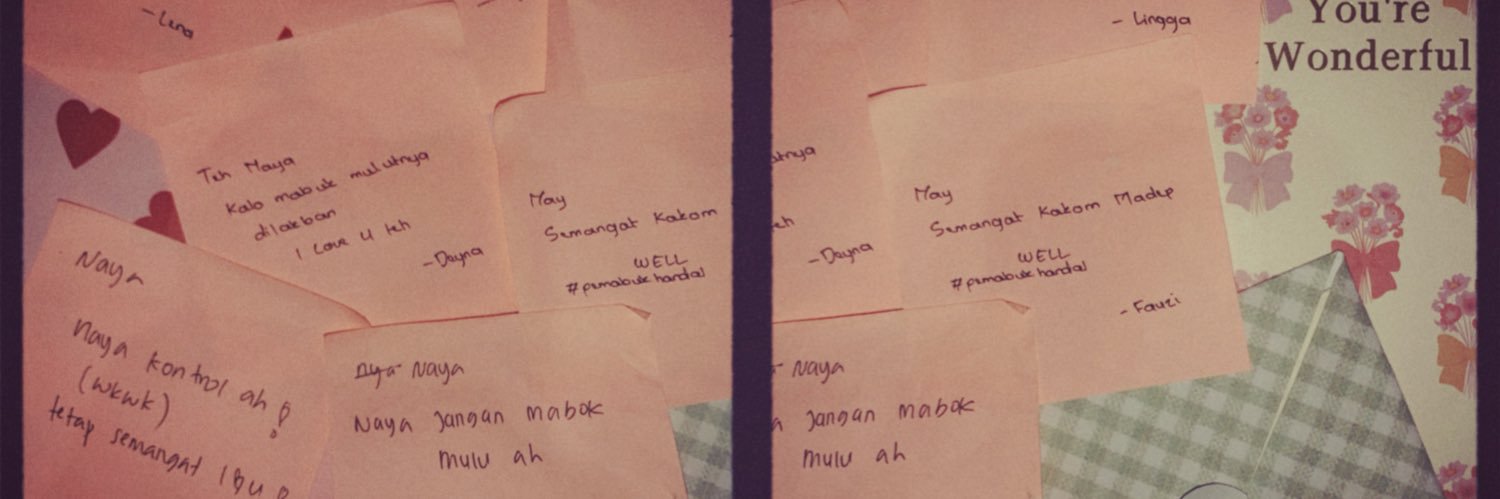 -Lena
Teh Maya
Kalo mabuk mulutnya
dilakban
I Love U teh
-Dayna
May
Semangat Kakom
WELL
#pemabukhandal
Naya
Naya kontrol ah!
(wkwk)
tetap semangat IBU
Naya
Naya Jangan mabok
mulu ah
- Lingga
-Dayna
May
Semangat Kakom Madep
WELL
#pemabukhandal
- Fauzi
Naya
Jangan mabok
mulu ah
You're
Wonderful